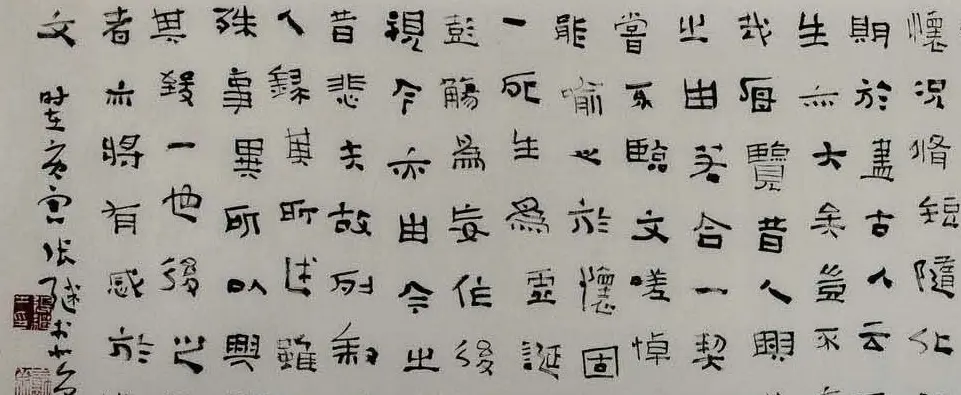 懷況脩短隨化
期於盡古人云
生亦大矣豈不
哉每覽昔人興
之由若合一契
嘗不臨文嗟悼
能喻之於懷固
一死生為虛誕
彭觴為妄作後
視今亦由今之
昔悲夫故列叙
人錄其所述雖
殊事異所以興
其致一也後之
者亦將有感於
文
时在庚寅张继书於京